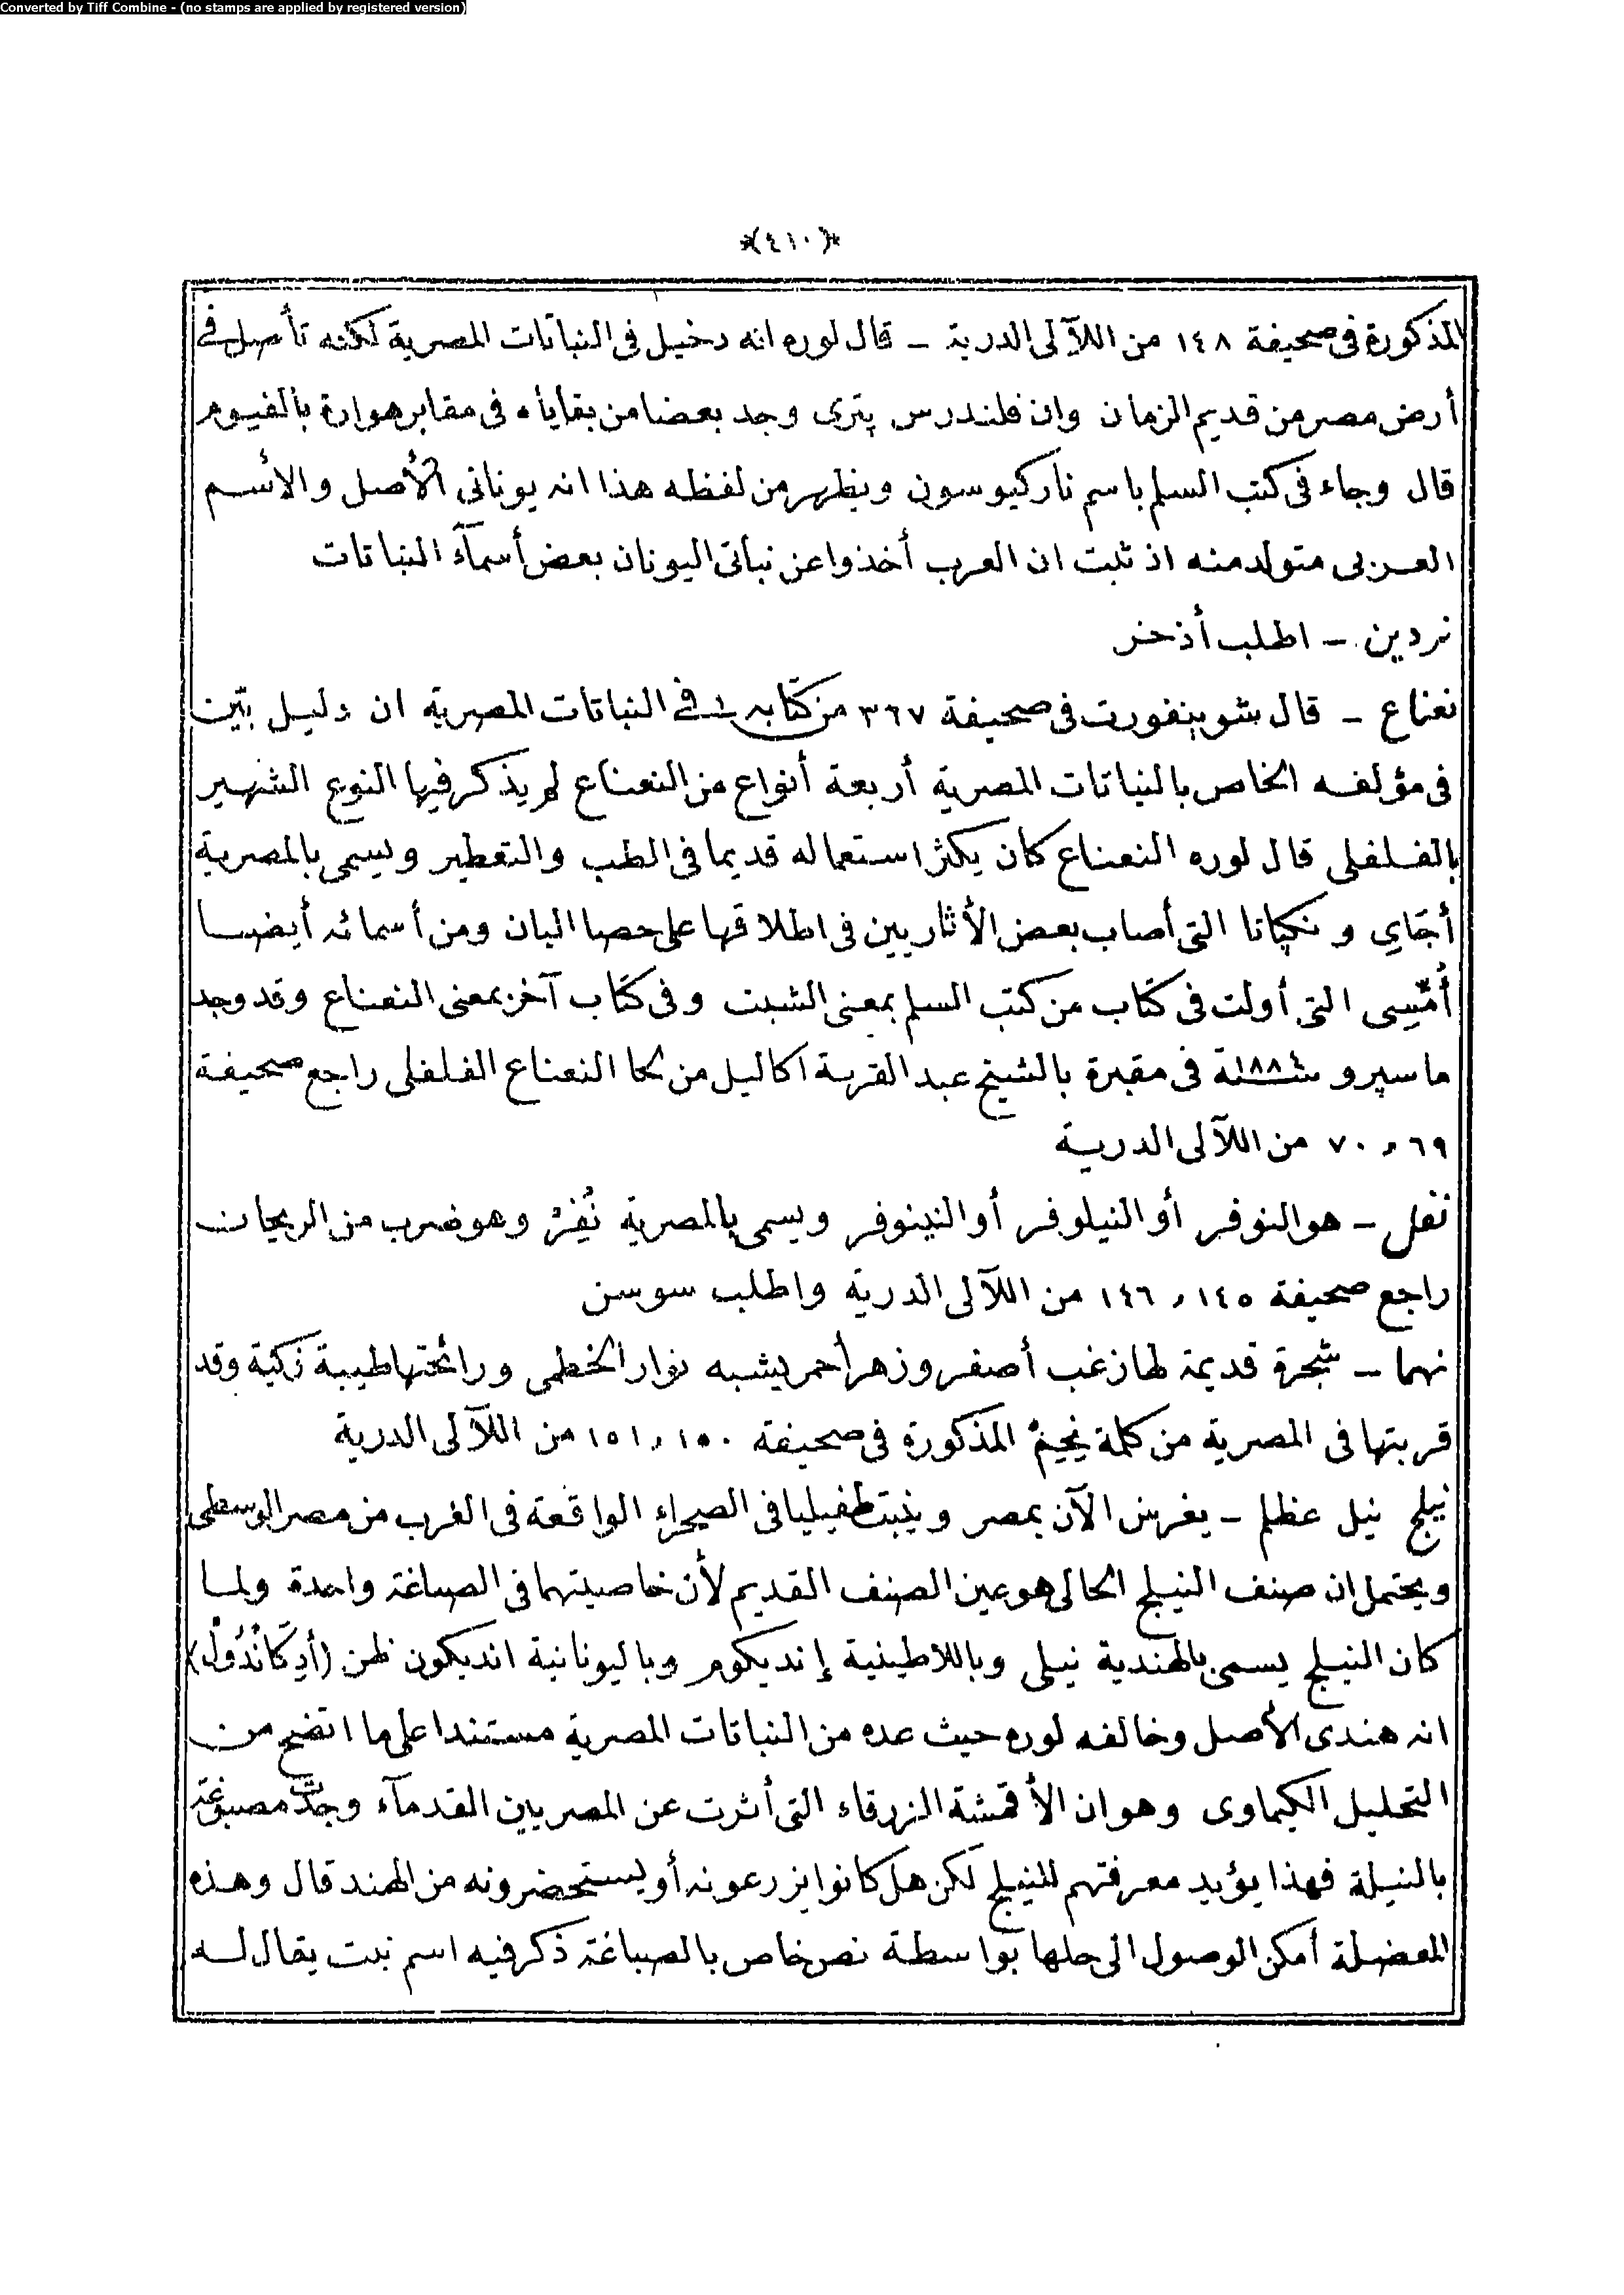 Converted by Tiff Combine - (no stamps are applied by registered version)
*(٤١٠)*
المذكورة فى صحيفة ١٤٨ من اللآلى الدرية ـ قال لوره انه دخيل فى النباتات المصرية لكنه تأصل فى
أرض مصر من قديم الزمان وان فلندرس پترى وجد بعضا من بقاياه فى مقابر هوارة بالفيوم
قال وجاء فى كتب السلم باسم ناركيوسون ويظهر من لفظه هذا انه يونانى الأصل والاسم
العربى متولد منه اذ ثبت ان العرب أخذوا عن نباتى اليونان بعض أسمآء النباتات
نردين ـ اطلب أذخر
نعناع ـ قال شوينفورت فى صحيفة ٣٦٧ من كتابه فى النباتات المصرية ان دليل بيّن
فى مؤلفه الخاص بالنباتات المصرية أربعة أنواع من النعناع لم يذكر فيها النوع الشهير
بالفلفلى قال لوره النعناع كان يكثر استعماله قديما فى الطب والتعطير ويسمى بالمصرية
أجَاي و نكپاتا التى أصاب بعض الأثاريين فى اطلاقها على حصا البان ومن أسمائه أيضا
أُمّيسى التى أولت فى كتاب من كتب السلم بمعنى الشبت وفى كتاب آخر بمعنى النعناع وقد وجد
ماسپرو سنة ١٨٨٤ فى مقبرة بالشيخ عبد القرنة اكاليل من لحا النعناع الفلفلى راجع صحيفة
٦٩ و ٧٠ من اللآلى الدرية
نفل ـ هو النوفر أو النيلوفر أو النينوفر ويسمى بالمصرية نُفِرْ وهو ضرب من الريحان
راجع صحيفة ١٤٥ و ١٤٦ من اللآلى الدرية واطلب سوسن
نهما ـ شجرة قديمة لها زغب أصفر وزهر أحمر يشبه نوار الخطمى ورائحتها طيبة زكية وقد
قربتها فى المصرية من كلمة المذكورة فى صحيفة ١٥٠ و ١٥١ من اللآلى الدرية
نيلج نيل عظلم ـ يغرس الآن بمصر وينبت طفيليا فى الصحراء الواقعة فى الغرب من مصر الوسطى
ويحتمل ان صنف النيلج الحالى هو عين الصنف القديم لأن خاصيتهما فى الصباغة واحدة ولما
كان النيلج يسمى بالهندية نيلى وباللاطينية إنديكوم وباليونانية انديكون ظن (أدِكَانْدُولْ)
انه هندى الأصل وخالفه لوره حيث عده من النباتات المصرية مستندا على ما اتضح من
التحليل الكيماوى وهو ان الأقمشة الزرقاء التى أثرت عن المصريين القدمآء وجدت مصبوغة
بالنيلة فهذا يؤيد معرفتهم للنيلج لكن هل كانوا يزرعونه أو يستحضرونه من الهند قال وهذه
المعضلة أمكن الوصول الى حلها بواسطة نص خاص بالصباغة ذكر فيه اسم نبت يقال له